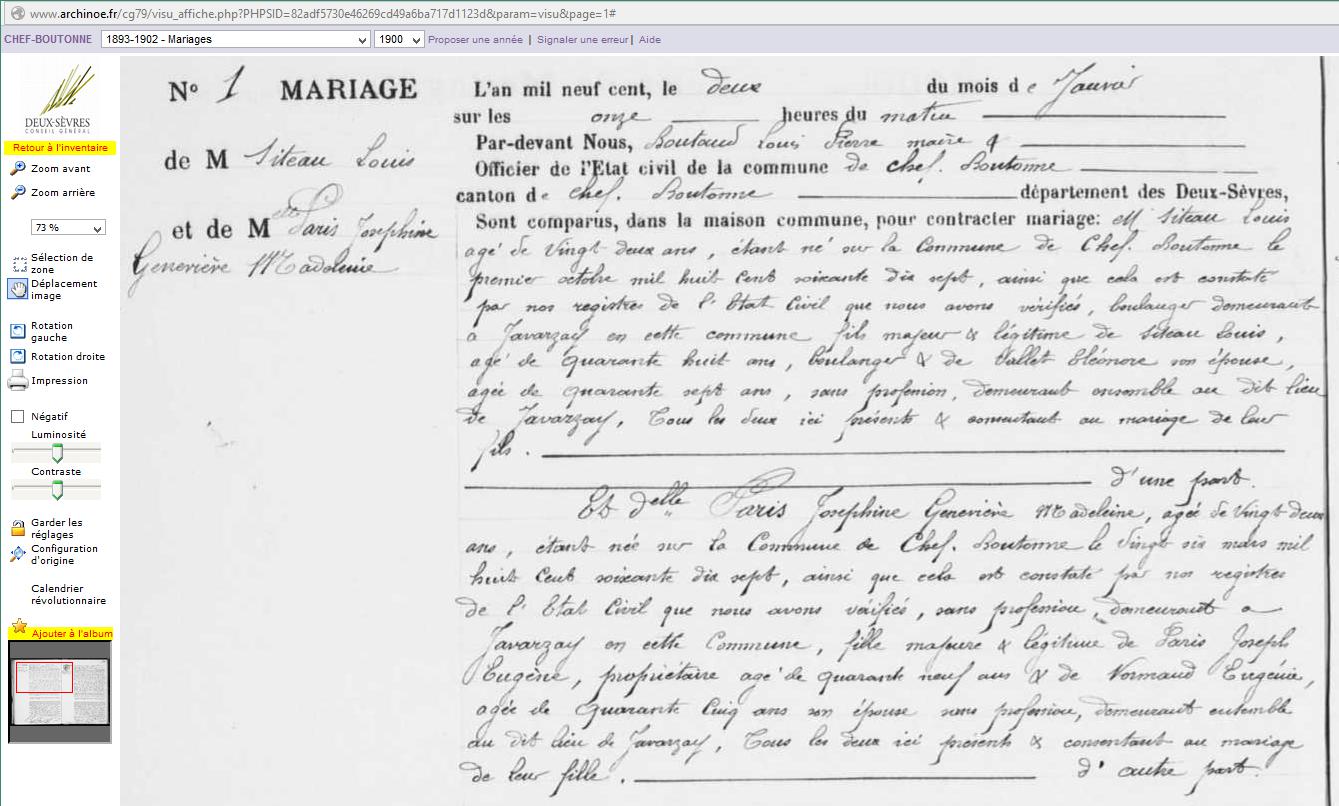 www.archinoe.fr/cg79/visu_affiche.php?PHPSID=82adf5730e46269cd49a6ba717d1123d&param=visu&page=1#
CHEF-BOUTONNE 1893-1902 - Mariages 1900 Proposer une année | Signaler une erreur | Aide
DEUX-SÈVRES
CONSEIL GÉNÉRAL
Retour à l'inventaire
Zoom avant
Zoom arrière
73 %
Sélection de
zone
Déplacement
image
Rotation
gauche
Rotation droite
Impression
Négatif
Luminosité
Contraste
Garder les
réglages
Configuration
d'origine
Calendrier
révolutionnaire
Ajouter à l'album
No 1 MARIAGE
de M Siteau Louis
et de Melle Paris Josephine
Geneviève Madeleine
L'an mil neuf cent, le deux du mois de Janvier
sur les onze heures du matin
Par-devant Nous, Boutaud Louis Pierre maire &
Officier de l'Etat civil de la commune de Chef. Boutonne
canton de Chef. Boutonne département des Deux-Sèvres,
Sont comparus, dans la maison commune, pour contracter mariage: M Siteau Louis
agé de Vingt deux ans, étant né sur la Commune de Chef. Boutonne le
premier octobre mil huit Cent soixante dix sept, ainsi que cela est constaté
par nos registres de l'Etat Civil que nous avons vérifiés, boulanger demeurant
à Javarzay en cette commune fils majeur & légitime de Siteau Louis,
agé de quarante huit ans, boulanger & de Vallet Eléonore son épouse,
agée de quarante sept ans, sans profession, demeurant ensemble au dit lieu
de Javarzay, Tous les deux ici présents & consentant au mariage de leur
fils.
d'une part.
Et delle Paris Josephine Geneviève Madeleine, agée de Vingt deux
ans, étant née sur la Commune de Chef. Boutonne le Vingt six mars mil
huit Cent soixante dix sept, ainsi que cela est constaté par nos registres
de l'Etat Civil que nous avons vérifiés, sans profession, demeurant à
Javarzay en cette Commune, fille majeure & légitime de Paris Joseph
Eugène, propriétaire agé de quarante neuf ans & de Normand Eugénie,
agée de Quarante Cinq ans son épouse sans profession, demeurant ensemble
au dit lieu de Javarzay, Tous les deux ici présents & consentant au mariage
de leur fille. d'autre part.